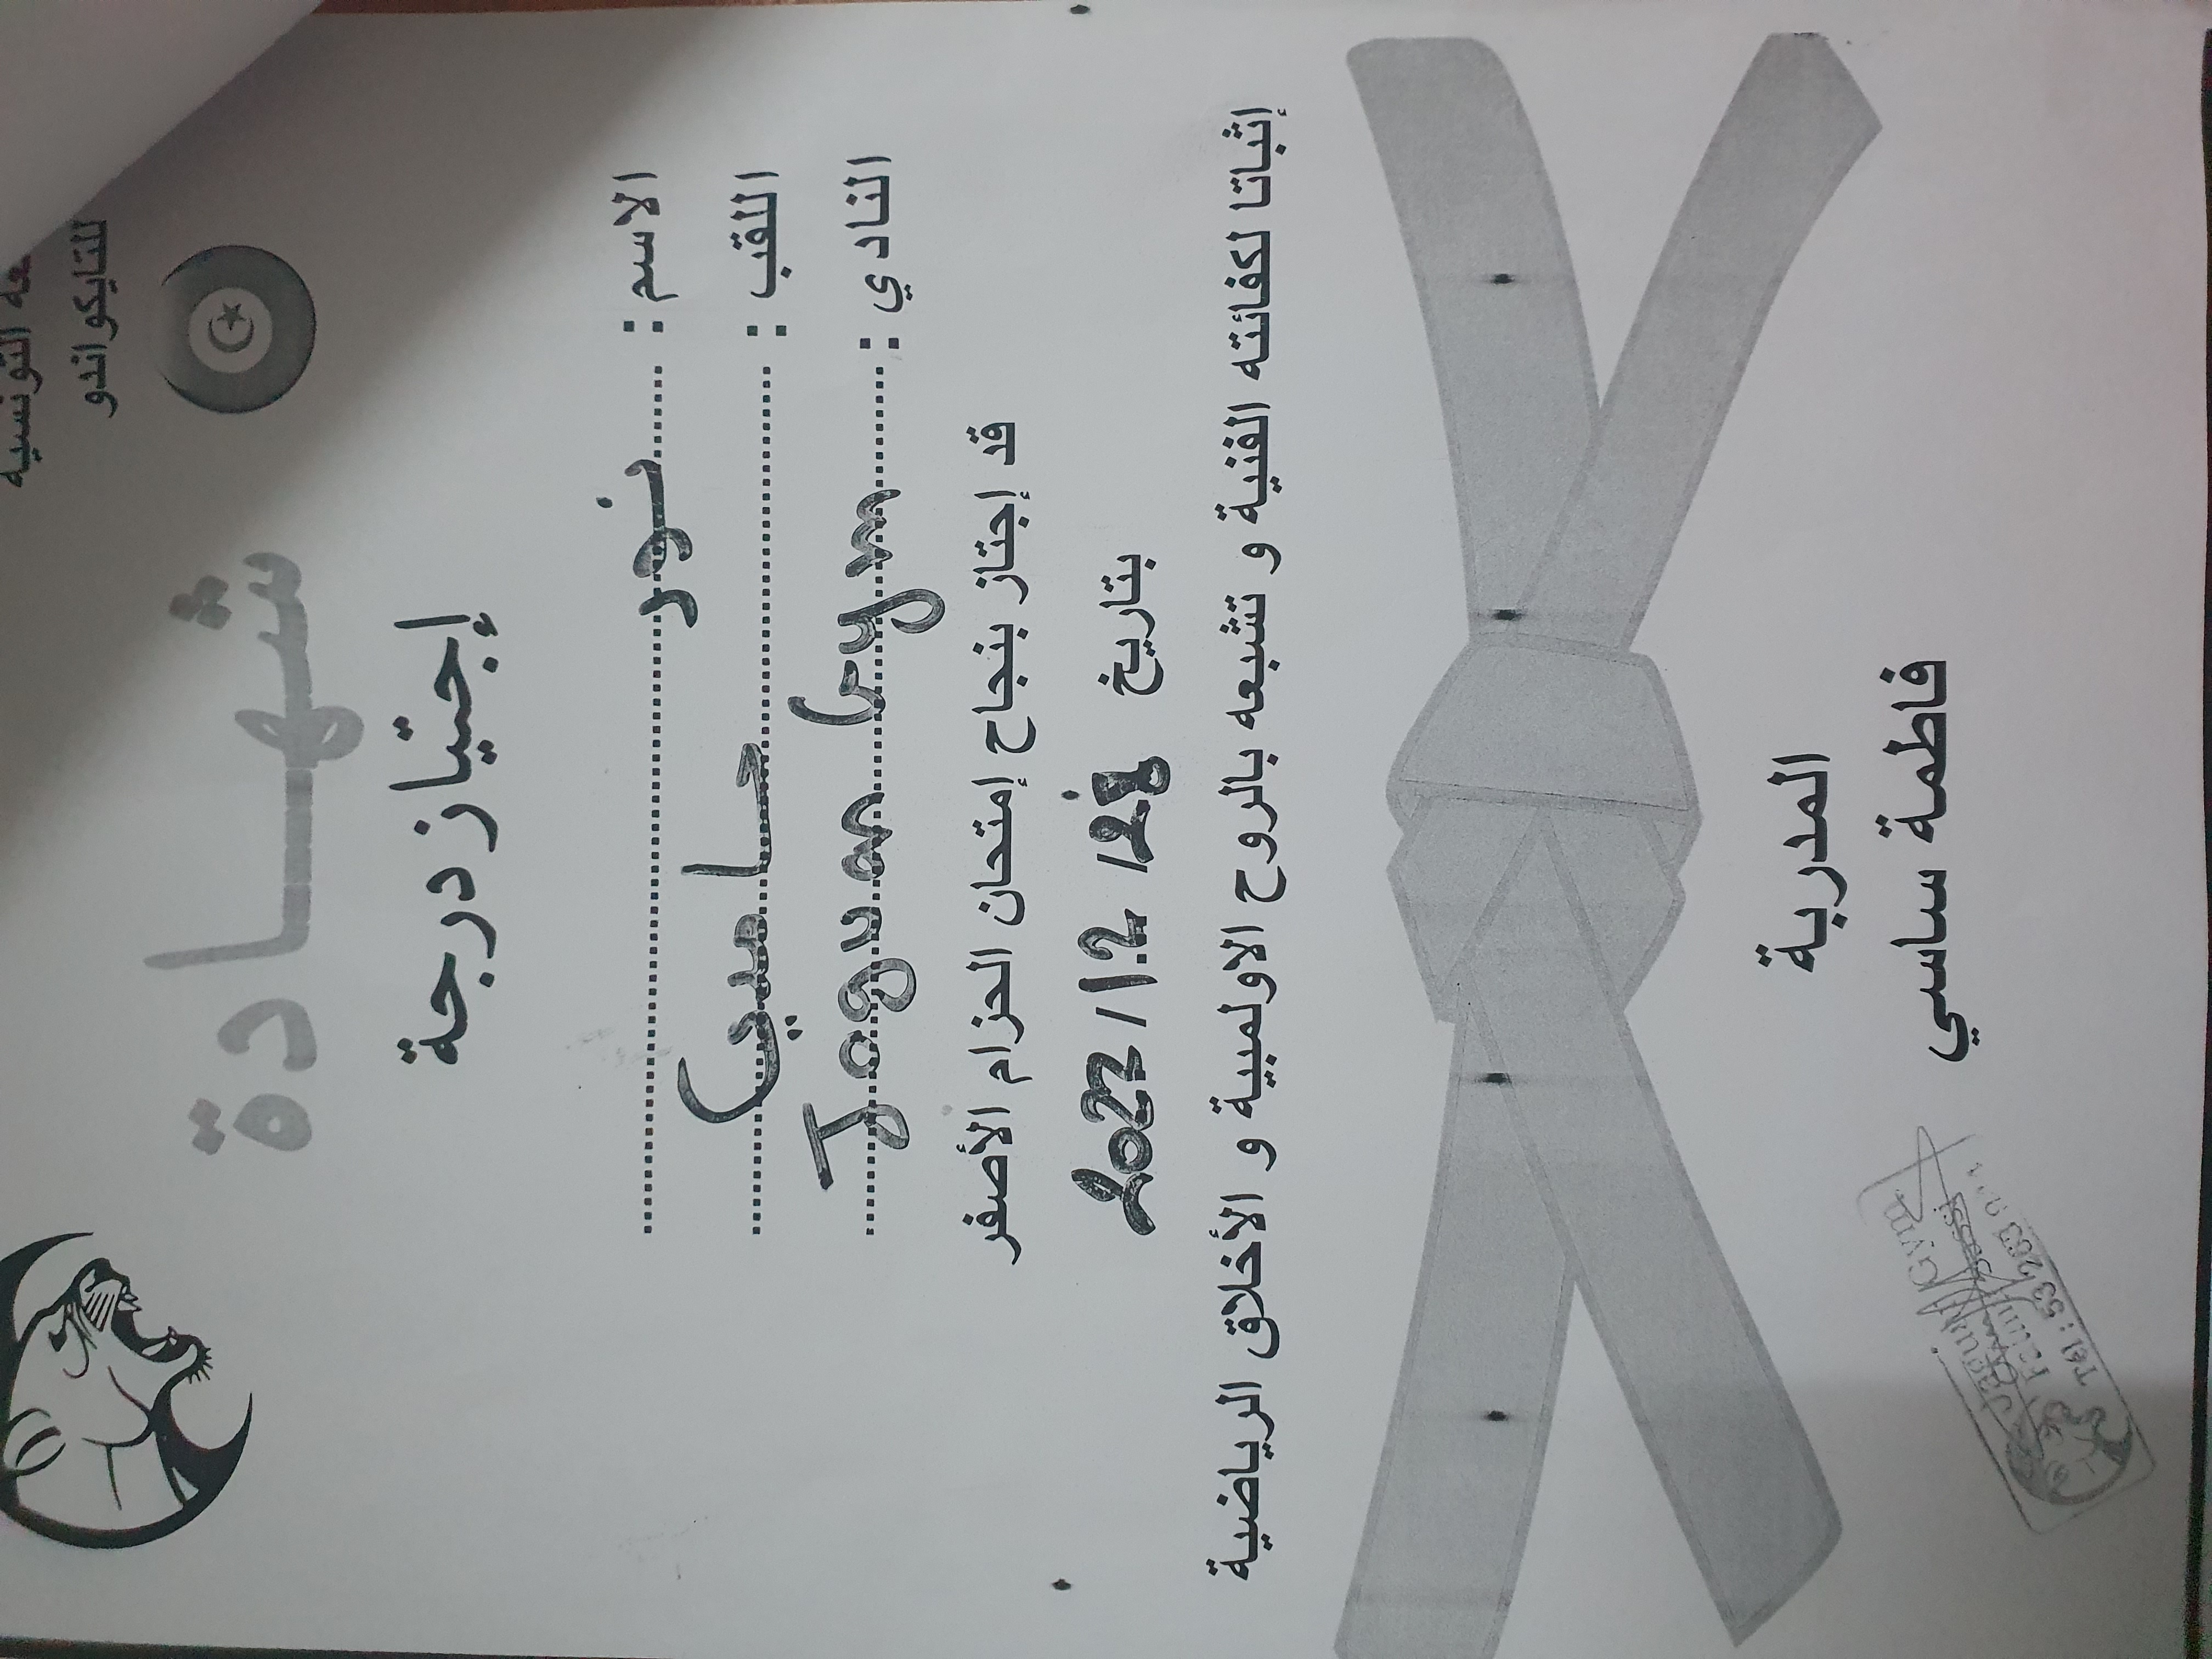 التونسية
للتايكواندو
شهادة
إجتياز درجة
الاسم : نور
اللقب : حامدي
النادي : Jaguar Gym
قد إجتاز بنجاح إمتحان الحزام الأصفر
بتاريخ 2022/12/28
إثباتا لكفائته الفنية و تشبعه بالروح الاولمبية و الأخلاق الرياضية
المدربة
فاطمة ساسي
Jaguar Gym
Tél : 53 283